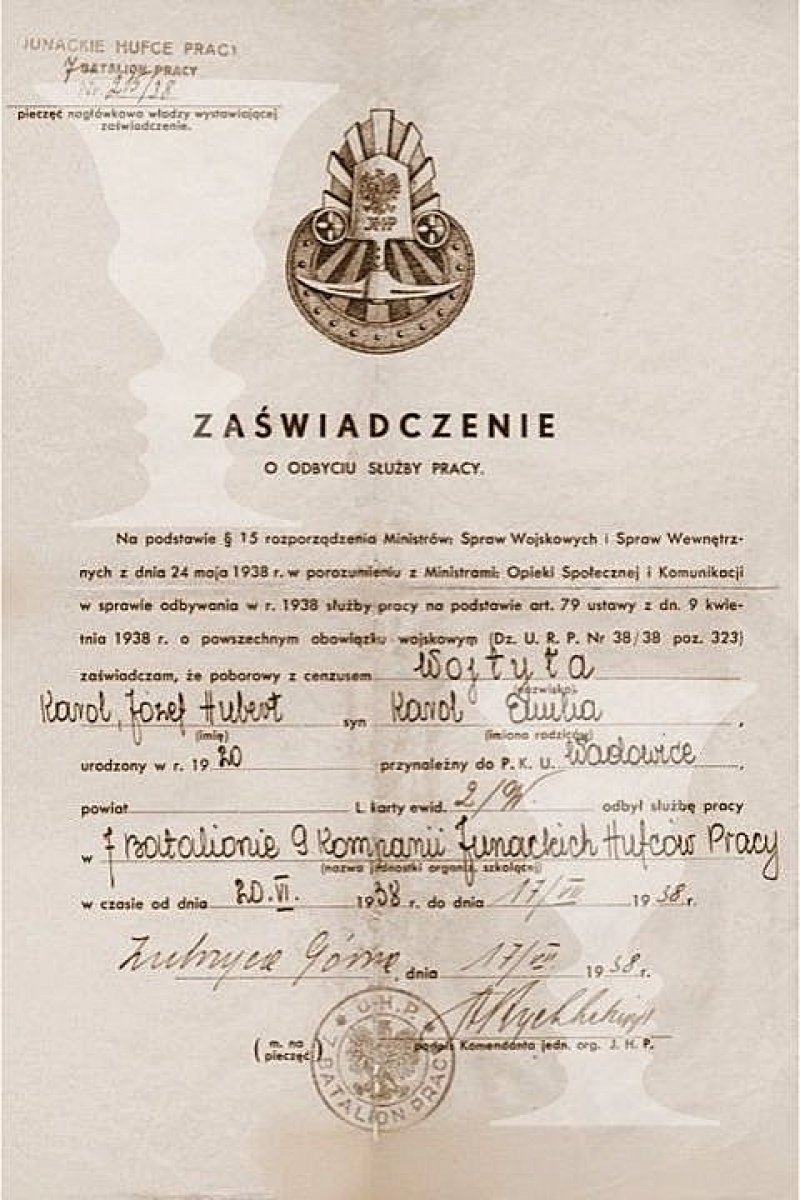 JUNACKIE HUFCE PRACY
7 BATALION PRACY
Nr 215/38
pieczęć nagłówkowa władzy wystawiającej
zaświadczenie.
JHP
ZAŚWIADCZENIE
O ODBYCIU SŁUŻBY PRACY.
Na podstawie § 15 rozporządzenia Ministrów: Spraw Wojskowych i Spraw Wewnętrz-
nych z dnia 24 maja 1938 r. w porozumieniu z Ministrami: Opieki Społecznej i Komunikacji
w sprawie odbywania w r. 1938 służby pracy na podstawie art. 79 ustawy z dn. 9 kwie-
tnia 1938 r. o powszechnym obowiązku wojskowym (Dz. U. R. P. Nr 38/38 poz. 323)
zaświadczam, że poborowy z cenzusem Wojtyła
(nazwisko)
Karol, Józef Hubert syn Karol Emilia,
(imię) (imiona rodziców)
urodzony w r. 1920 przynależny do P. K. U. Wadowice,
powiat L. karty ewid. 2/ odbył służbę pracy
w 7 Batalionie 9 Kompanii Junackich Hufców Pracy
(nazwa jednostki organiz. szkolącej)
w czasie od dnia 20.VI. 1938 r. do dnia 17/VII 1938 r.
Zubrzyca Górna, dnia 17/VII 1938 r.
(m. na
pieczęć)
podpis Komendanta jedn. org. J. H. P.
J.H.P.
7 BATALION PRACY